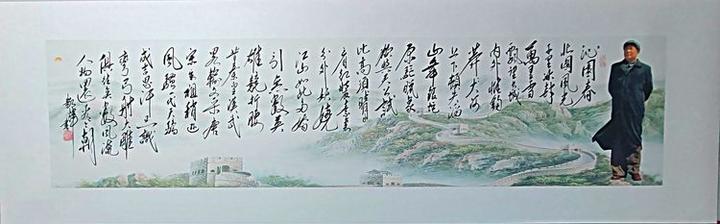 沁园春
北国风光
千里冰封
万里雪
飘望长城
内外惟余
莽莽大河
上下顿失滔滔
山舞银蛇
原驰蜡象
欲与天公试
比高须晴日
看红装素裹
分外妖娆
江山如此多娇
引无数英
雄竞折腰
惜秦皇汉武
略输文采唐
宗宋祖稍逊
风骚一代天骄
成吉思汗只识
弯弓射大雕
俱往矣数风流
人物还看今朝